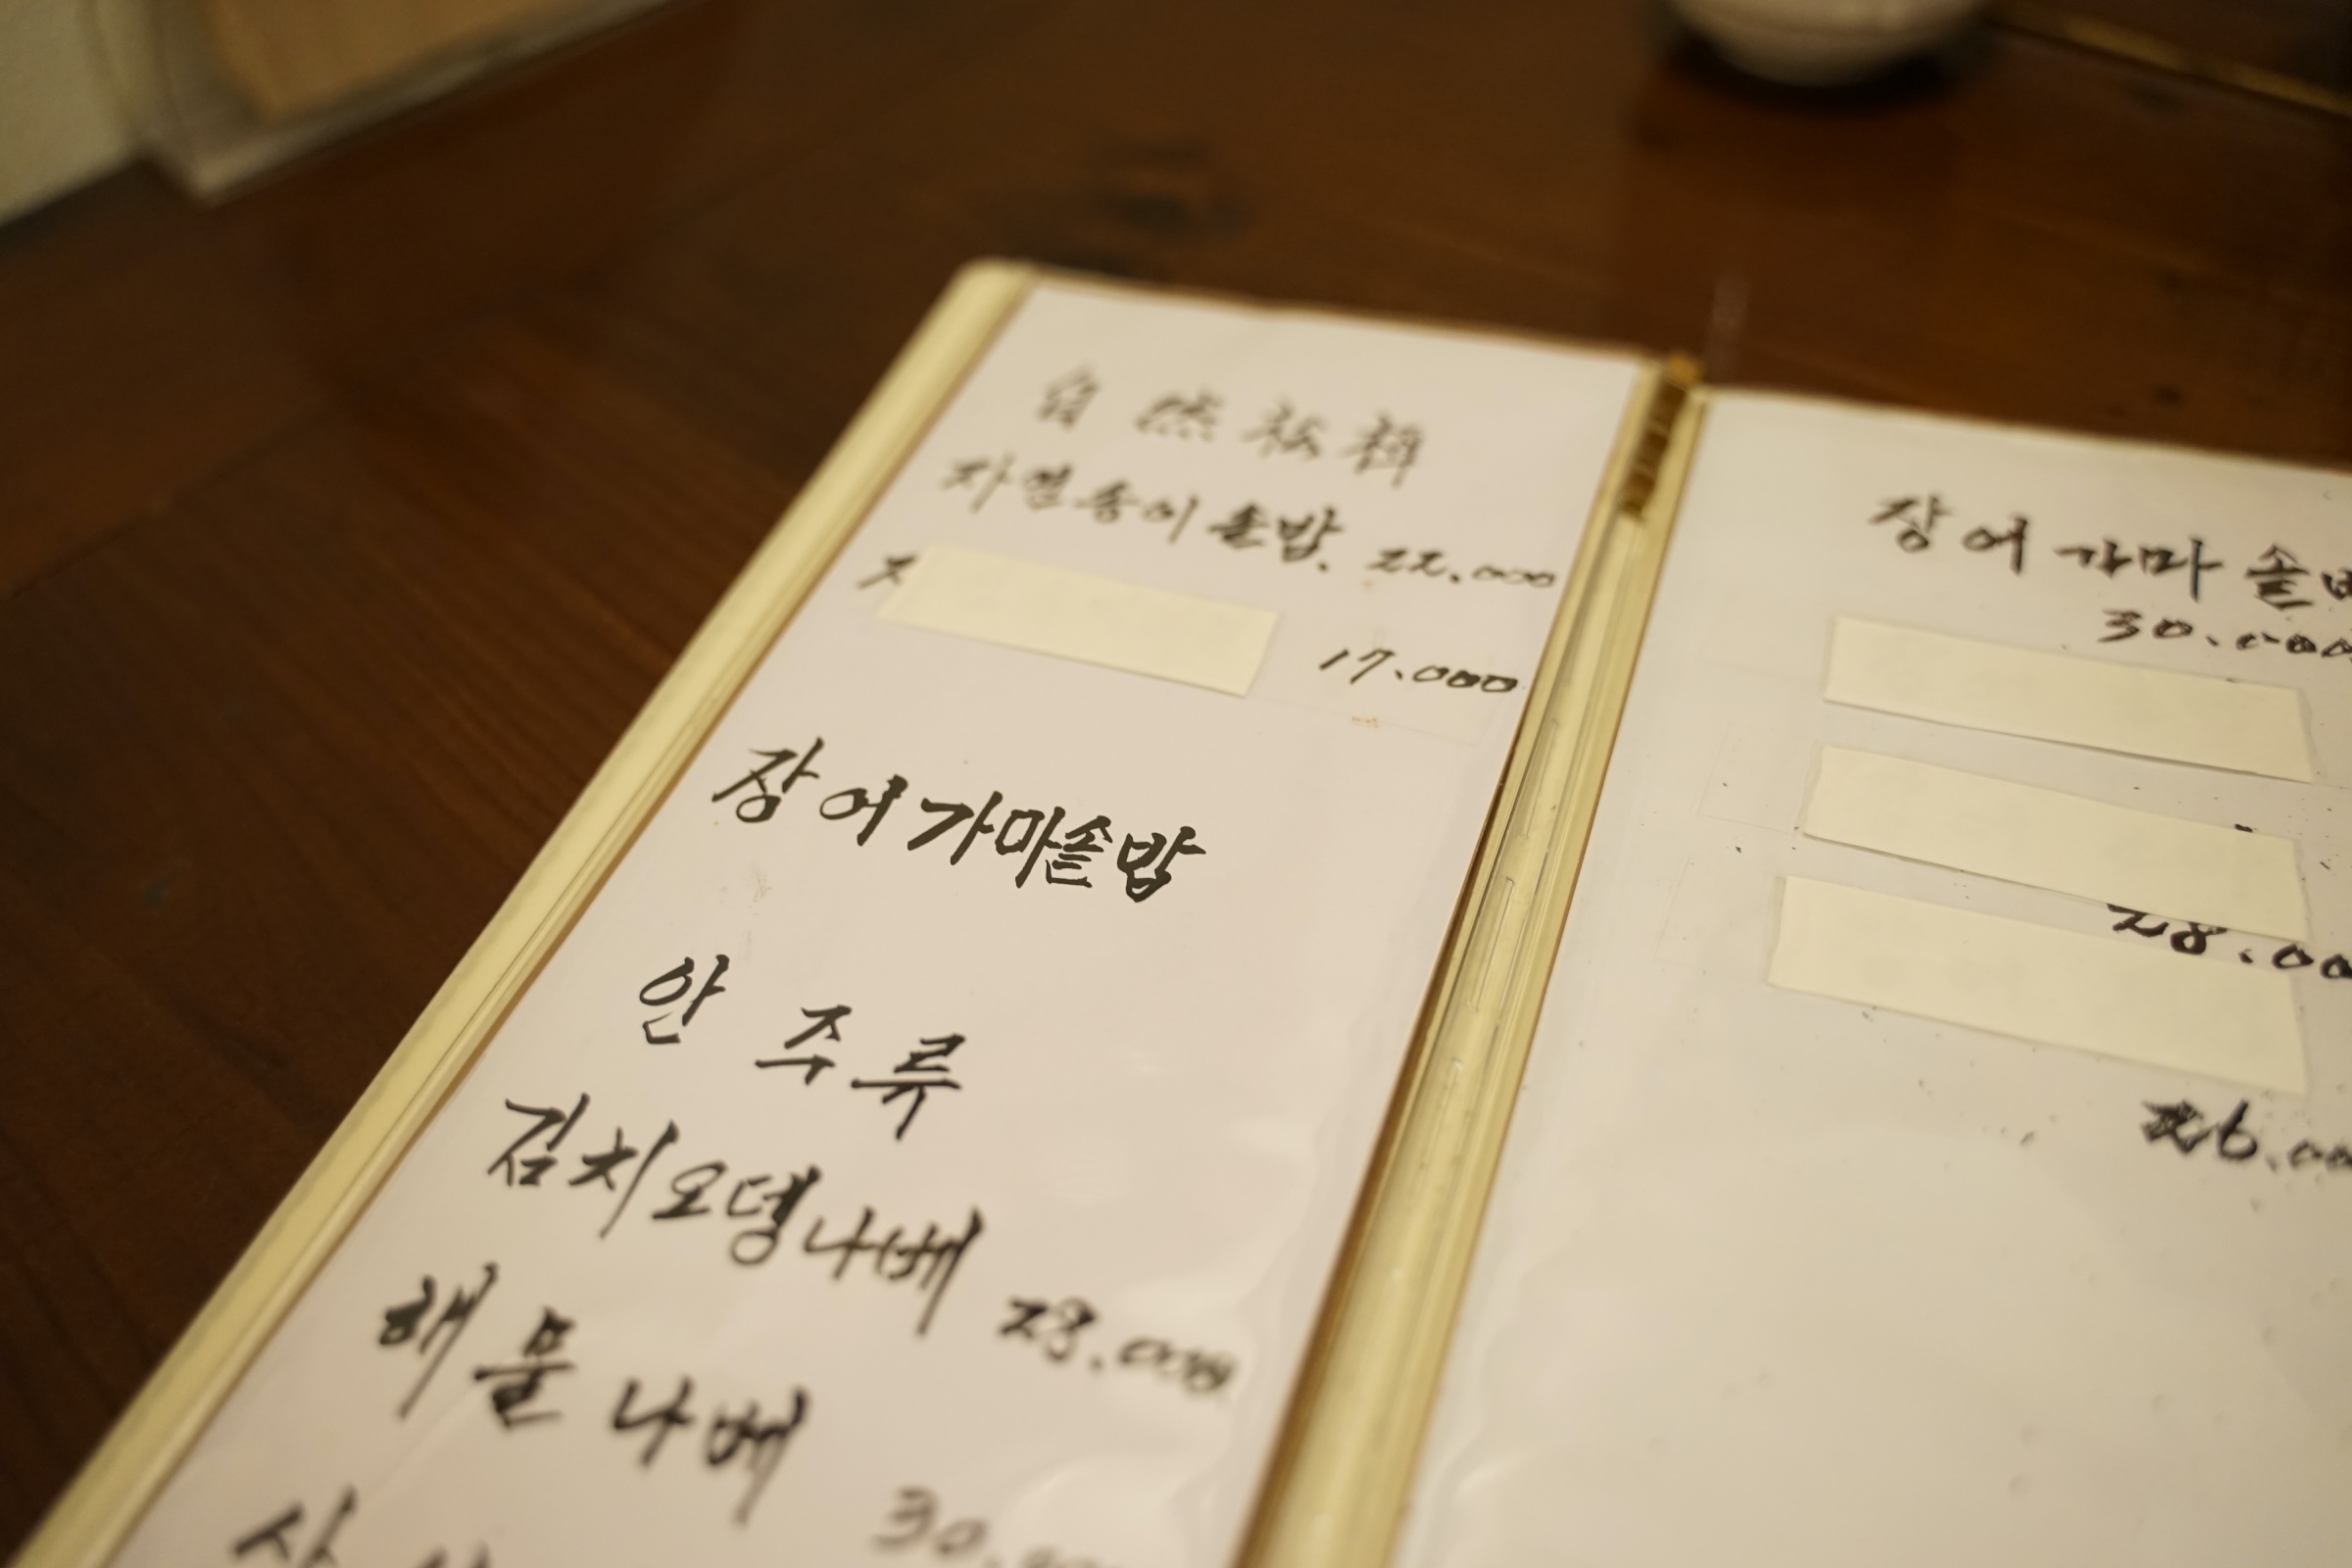 自然松
자연송이솥밥. 22.000
17.000
장어가마솥밥
안주류
김치오뎅나베 28.000
해물나베 30.000
장어가마솥
30.000
28.00
26.00